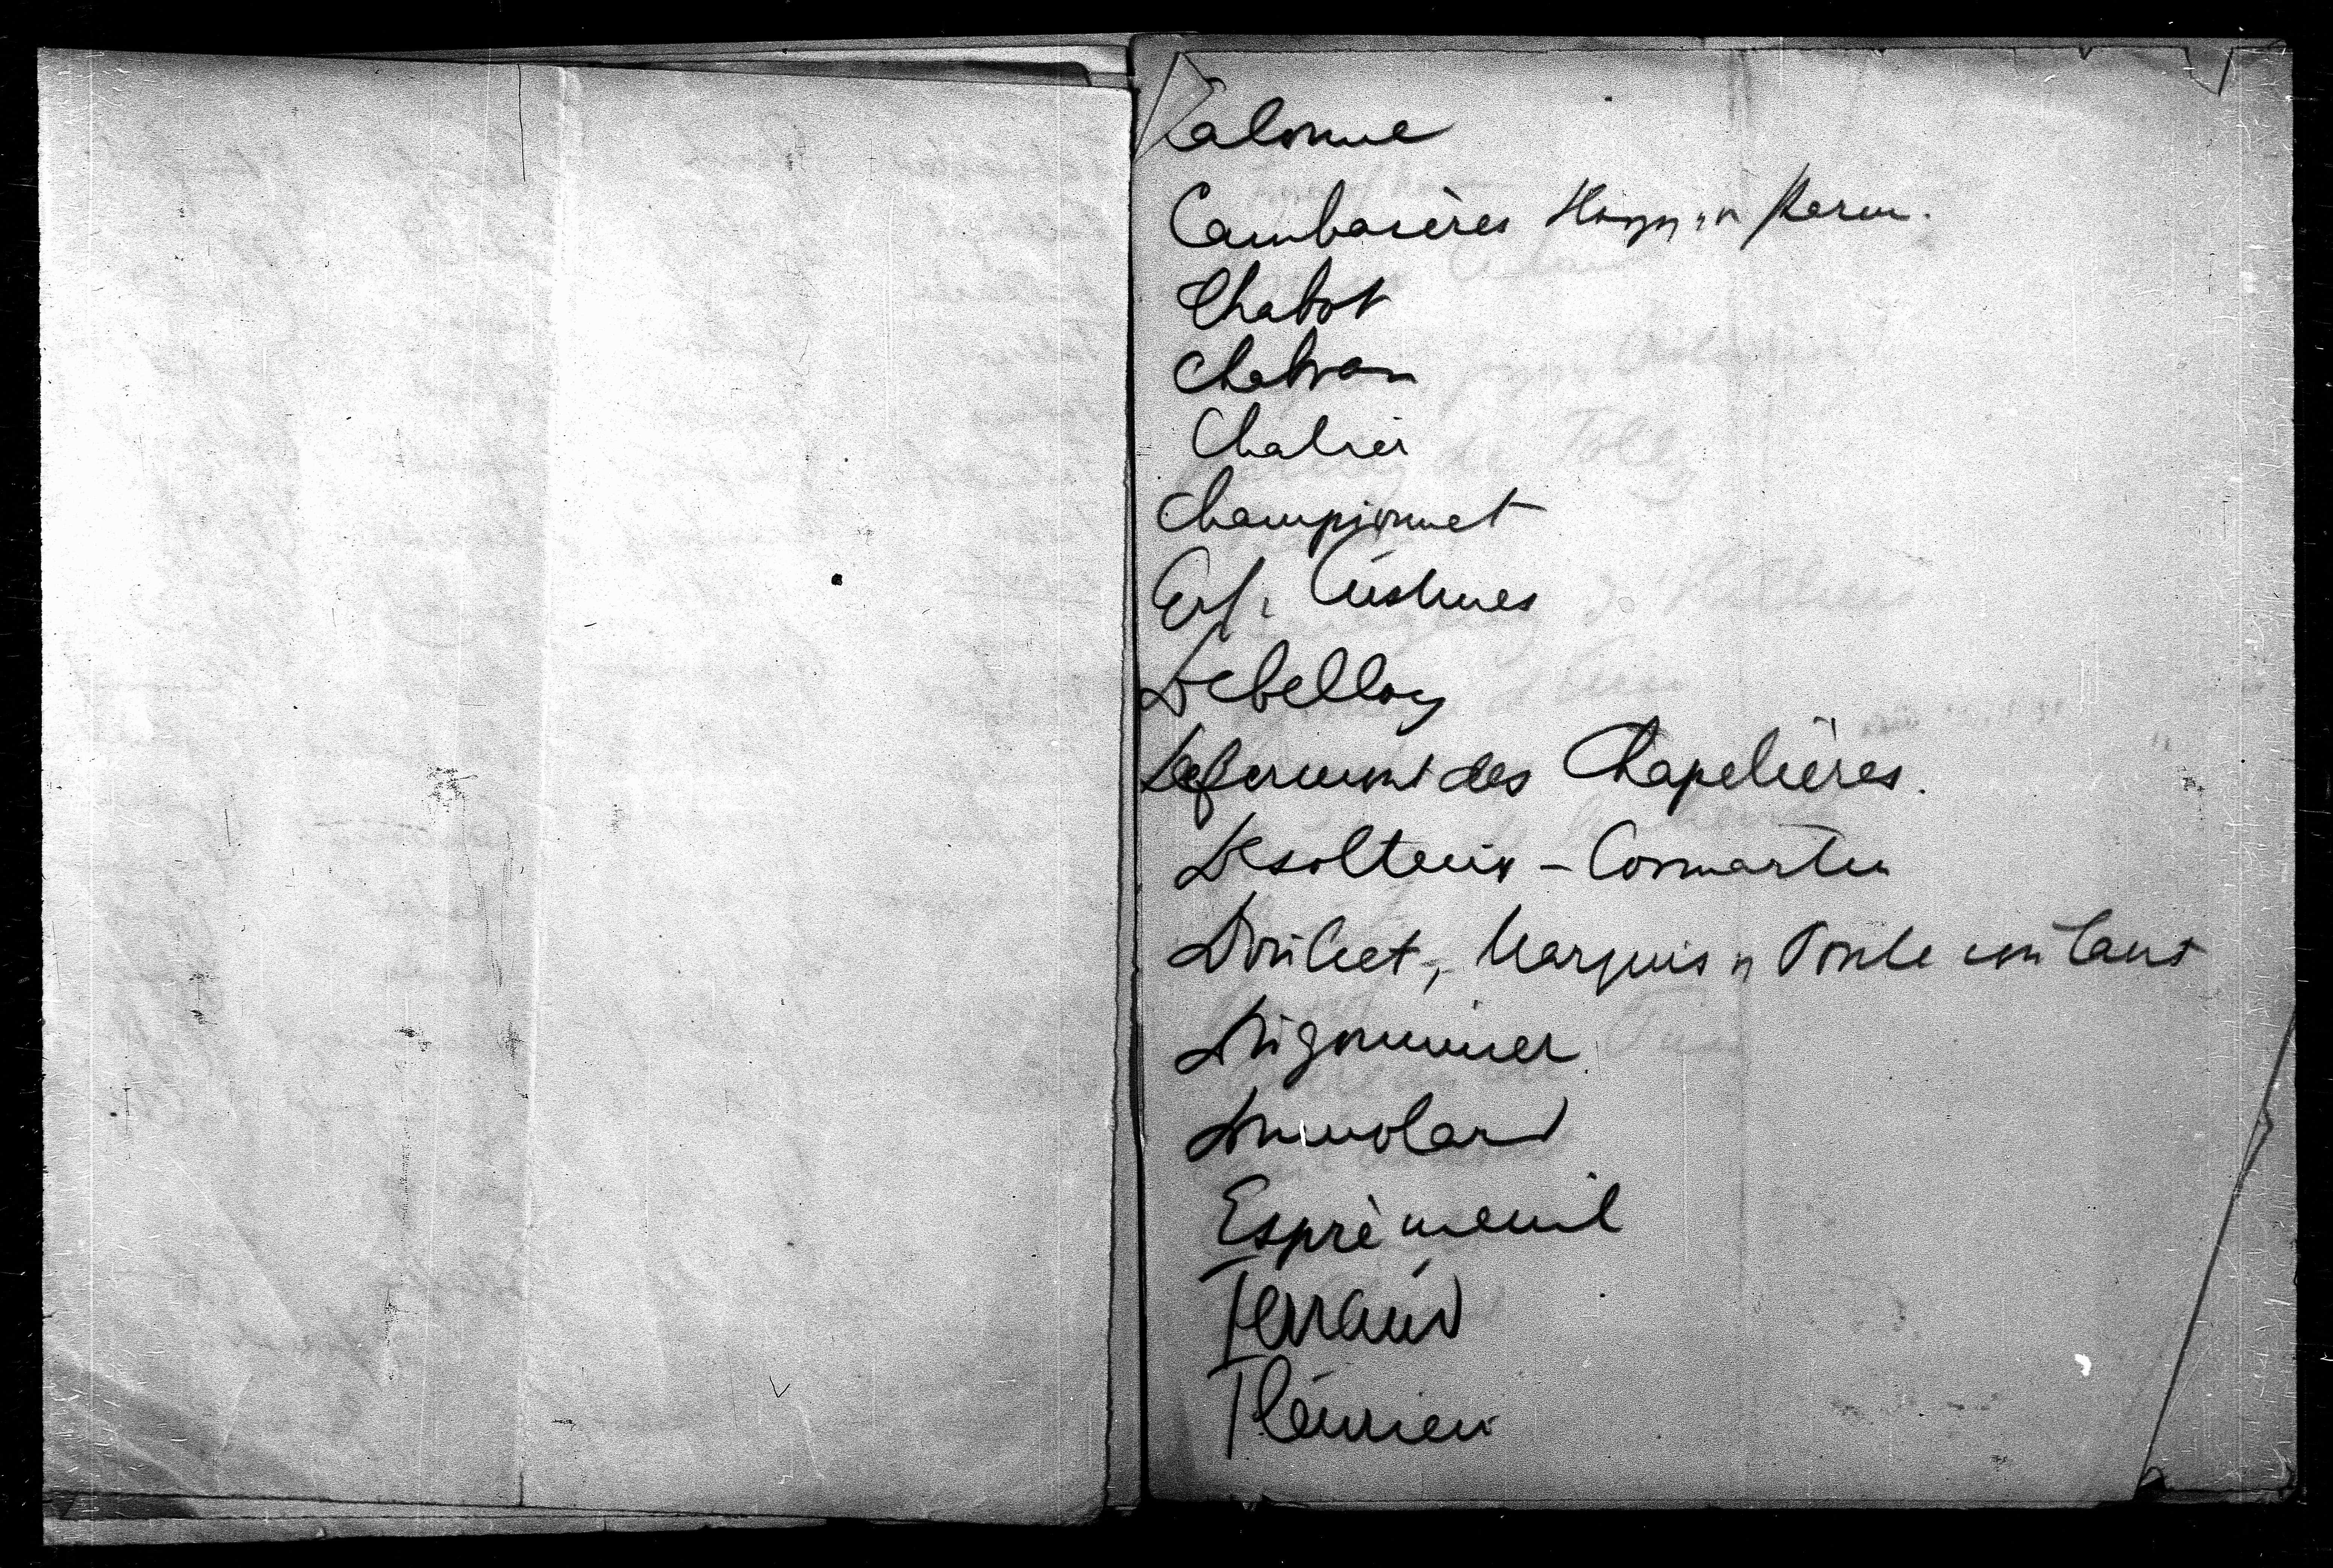 Calonne
Cambacérès Herzog v. Parm.
Chabot
Chabran
Chalier
Championnet
Custines
Debelloy
Defermont des Chapelières.
Desolteux - Cormartin
Doulcet, Marquis v Pontecoulant
Dugommier
Dumolard
Esprémenil
Ferraud
Fleurieu